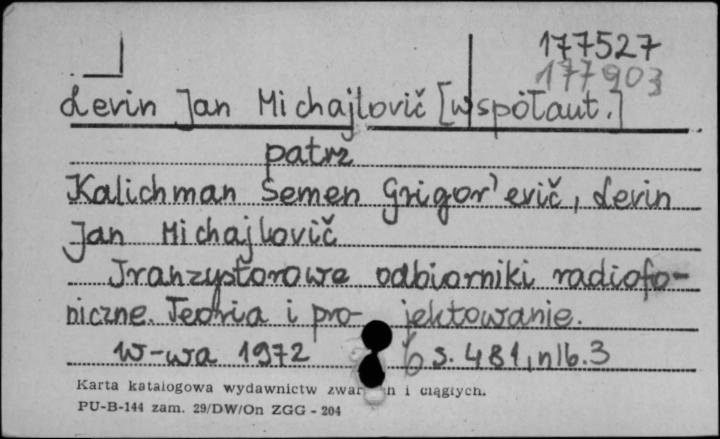 177527
177903
Levin Jan Michajlovič [współaut.]
patrz
Kalichman Semen Grigor'evič, Levin
Jan Michajlovič
Tranzystorowe odbiorniki radiofo-
niczne. Teoria i pro- jektowanie.
W-wa 1972 s. 481, nlb. 3
Karta katalogowa wydawnictw i ciągłych.
PU-B-144 zam. 29/DW/On ZGG - 204